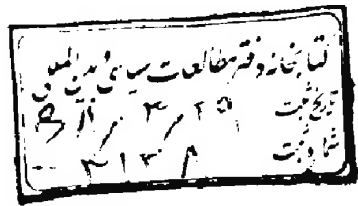 کتابخانه دفتر مطالعات سیاسی و بین‌المللی
تاریخ ثبت
شماره ثبت ۳۱۳۸